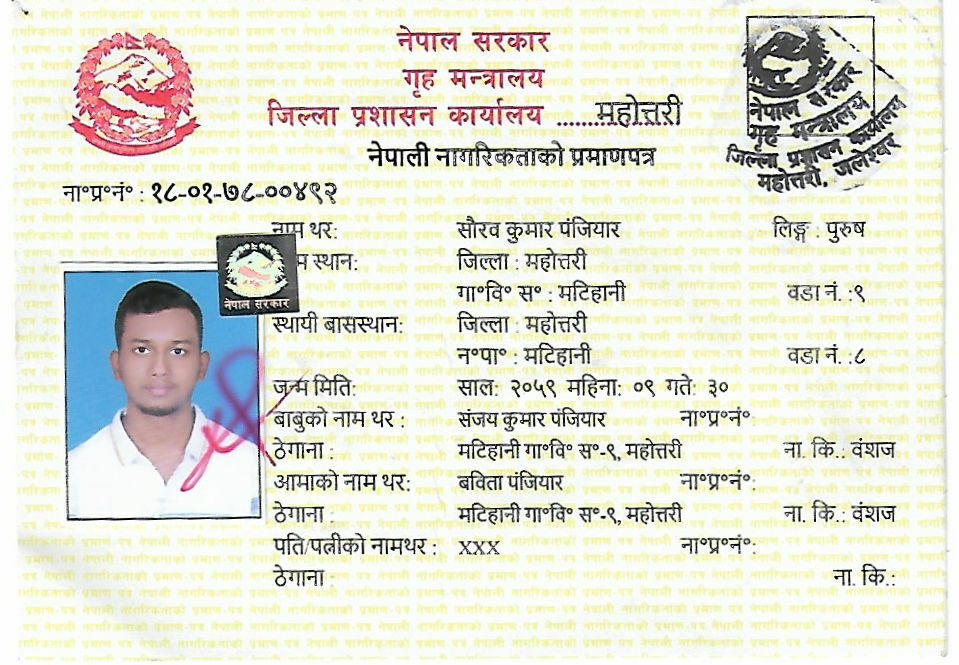 नेपाल सरकार
गृह मन्त्रालय
जिल्ला प्रशासन कार्यालय ................महोत्तरी
नेपाली नागरिकताको प्रमाणपत्र
नेपाल सरकार
गृह मन्त्रालय
जिल्ला प्रशासन कार्यालय
महोत्तरी, जलेश्वर
ना°प्र°नं° : १८-०१-७८-००४९२
नाम थर: सौरव कुमार पंजियार लिङ्ग : पुरुष
म स्थान: जिल्ला : महोत्तरी
नेपाल सरकार
गा°वि° स° : मटिहानी वडा नं. :९
स्थायी बासस्थान: जिल्ला : महोत्तरी
न°पा° : मटिहानी वडा नं. :८
जन्म मिति: साल: २०५९ महिना: ०९ गते: ३०
बाबुको नाम थर : संजय कुमार पंजियार ना°प्र°नं°:
ठेगाना : मटिहानी गा°वि° स°-९, महोत्तरी ना. कि.: वंशज
आमाको नाम थर: बविता पंजियार ना°प्र°नं°:
ठेगाना : मटिहानी गा°वि° स°-९, महोत्तरी ना. कि.: वंशज
पति/पत्नीको नामथर : xxx ना°प्र°नं°:
ठेगाना : ना. कि.: